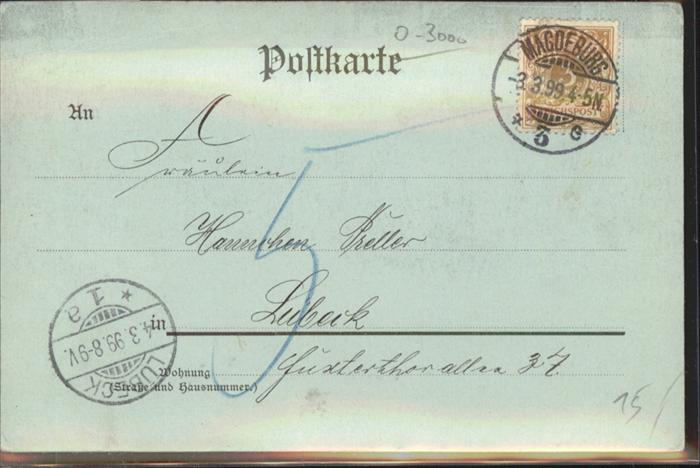 O-3000
Postkarte
MAGDEBURG
-3.3.99.4-5N.
* 3 c
3
REICHSPOST
An
Fräulein
5
Hannchen Zeller
in Lübeck
LÜBECK
4.3.99.8-9V.
* 1a
Wohnung
(Straße und Hausnummer.)
Hüxterthorallee 37.
15